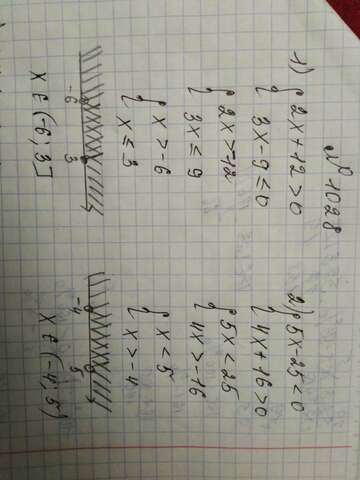 № 1028
1) { 2x + 12 > 0
{ 3x - 9 ≤ 0
{ 2x > -12
{ 3x ≤ 9
{ x > -6
{ x ≤ 3
-6 3
x ∈ (-6; 3]
2) { 5x - 25 < 0
{ 4x + 16 > 0
{ 5x < 25
{ 4x > -16
{ x < 5
{ x > -4
-4 5
x ∈ (-4; 5)